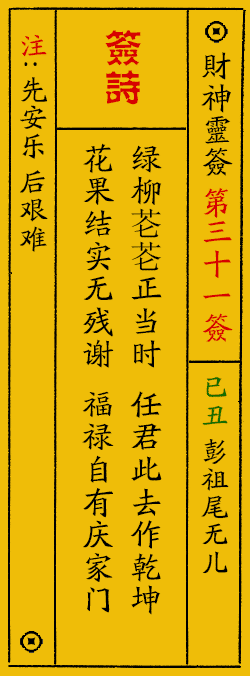 財神靈簽 第三十一簽
己丑 彭祖尾无儿
簽詩
绿柳苍苍正当时 任君此去作乾坤
花果结实无残谢 福禄自有庆家门
注:先安乐 后艰难